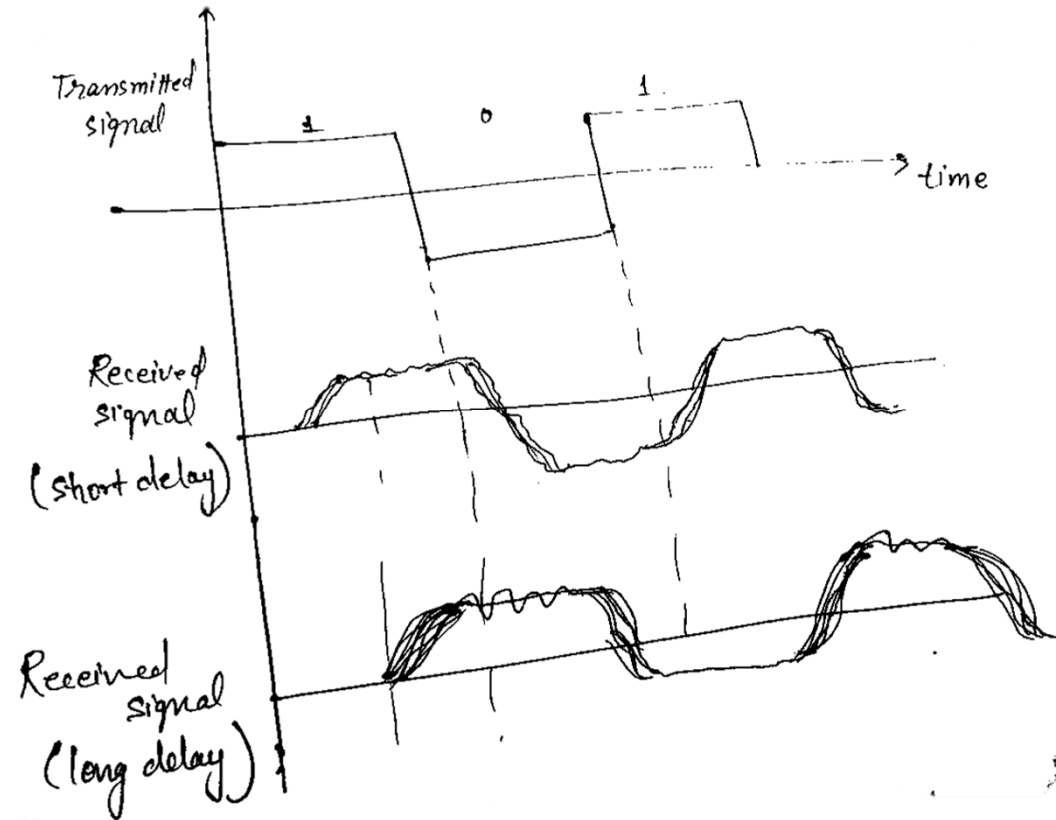 Transmitted
signal
1
0
1
time
Received
signal
(short delay)
Received
signal
(long delay)